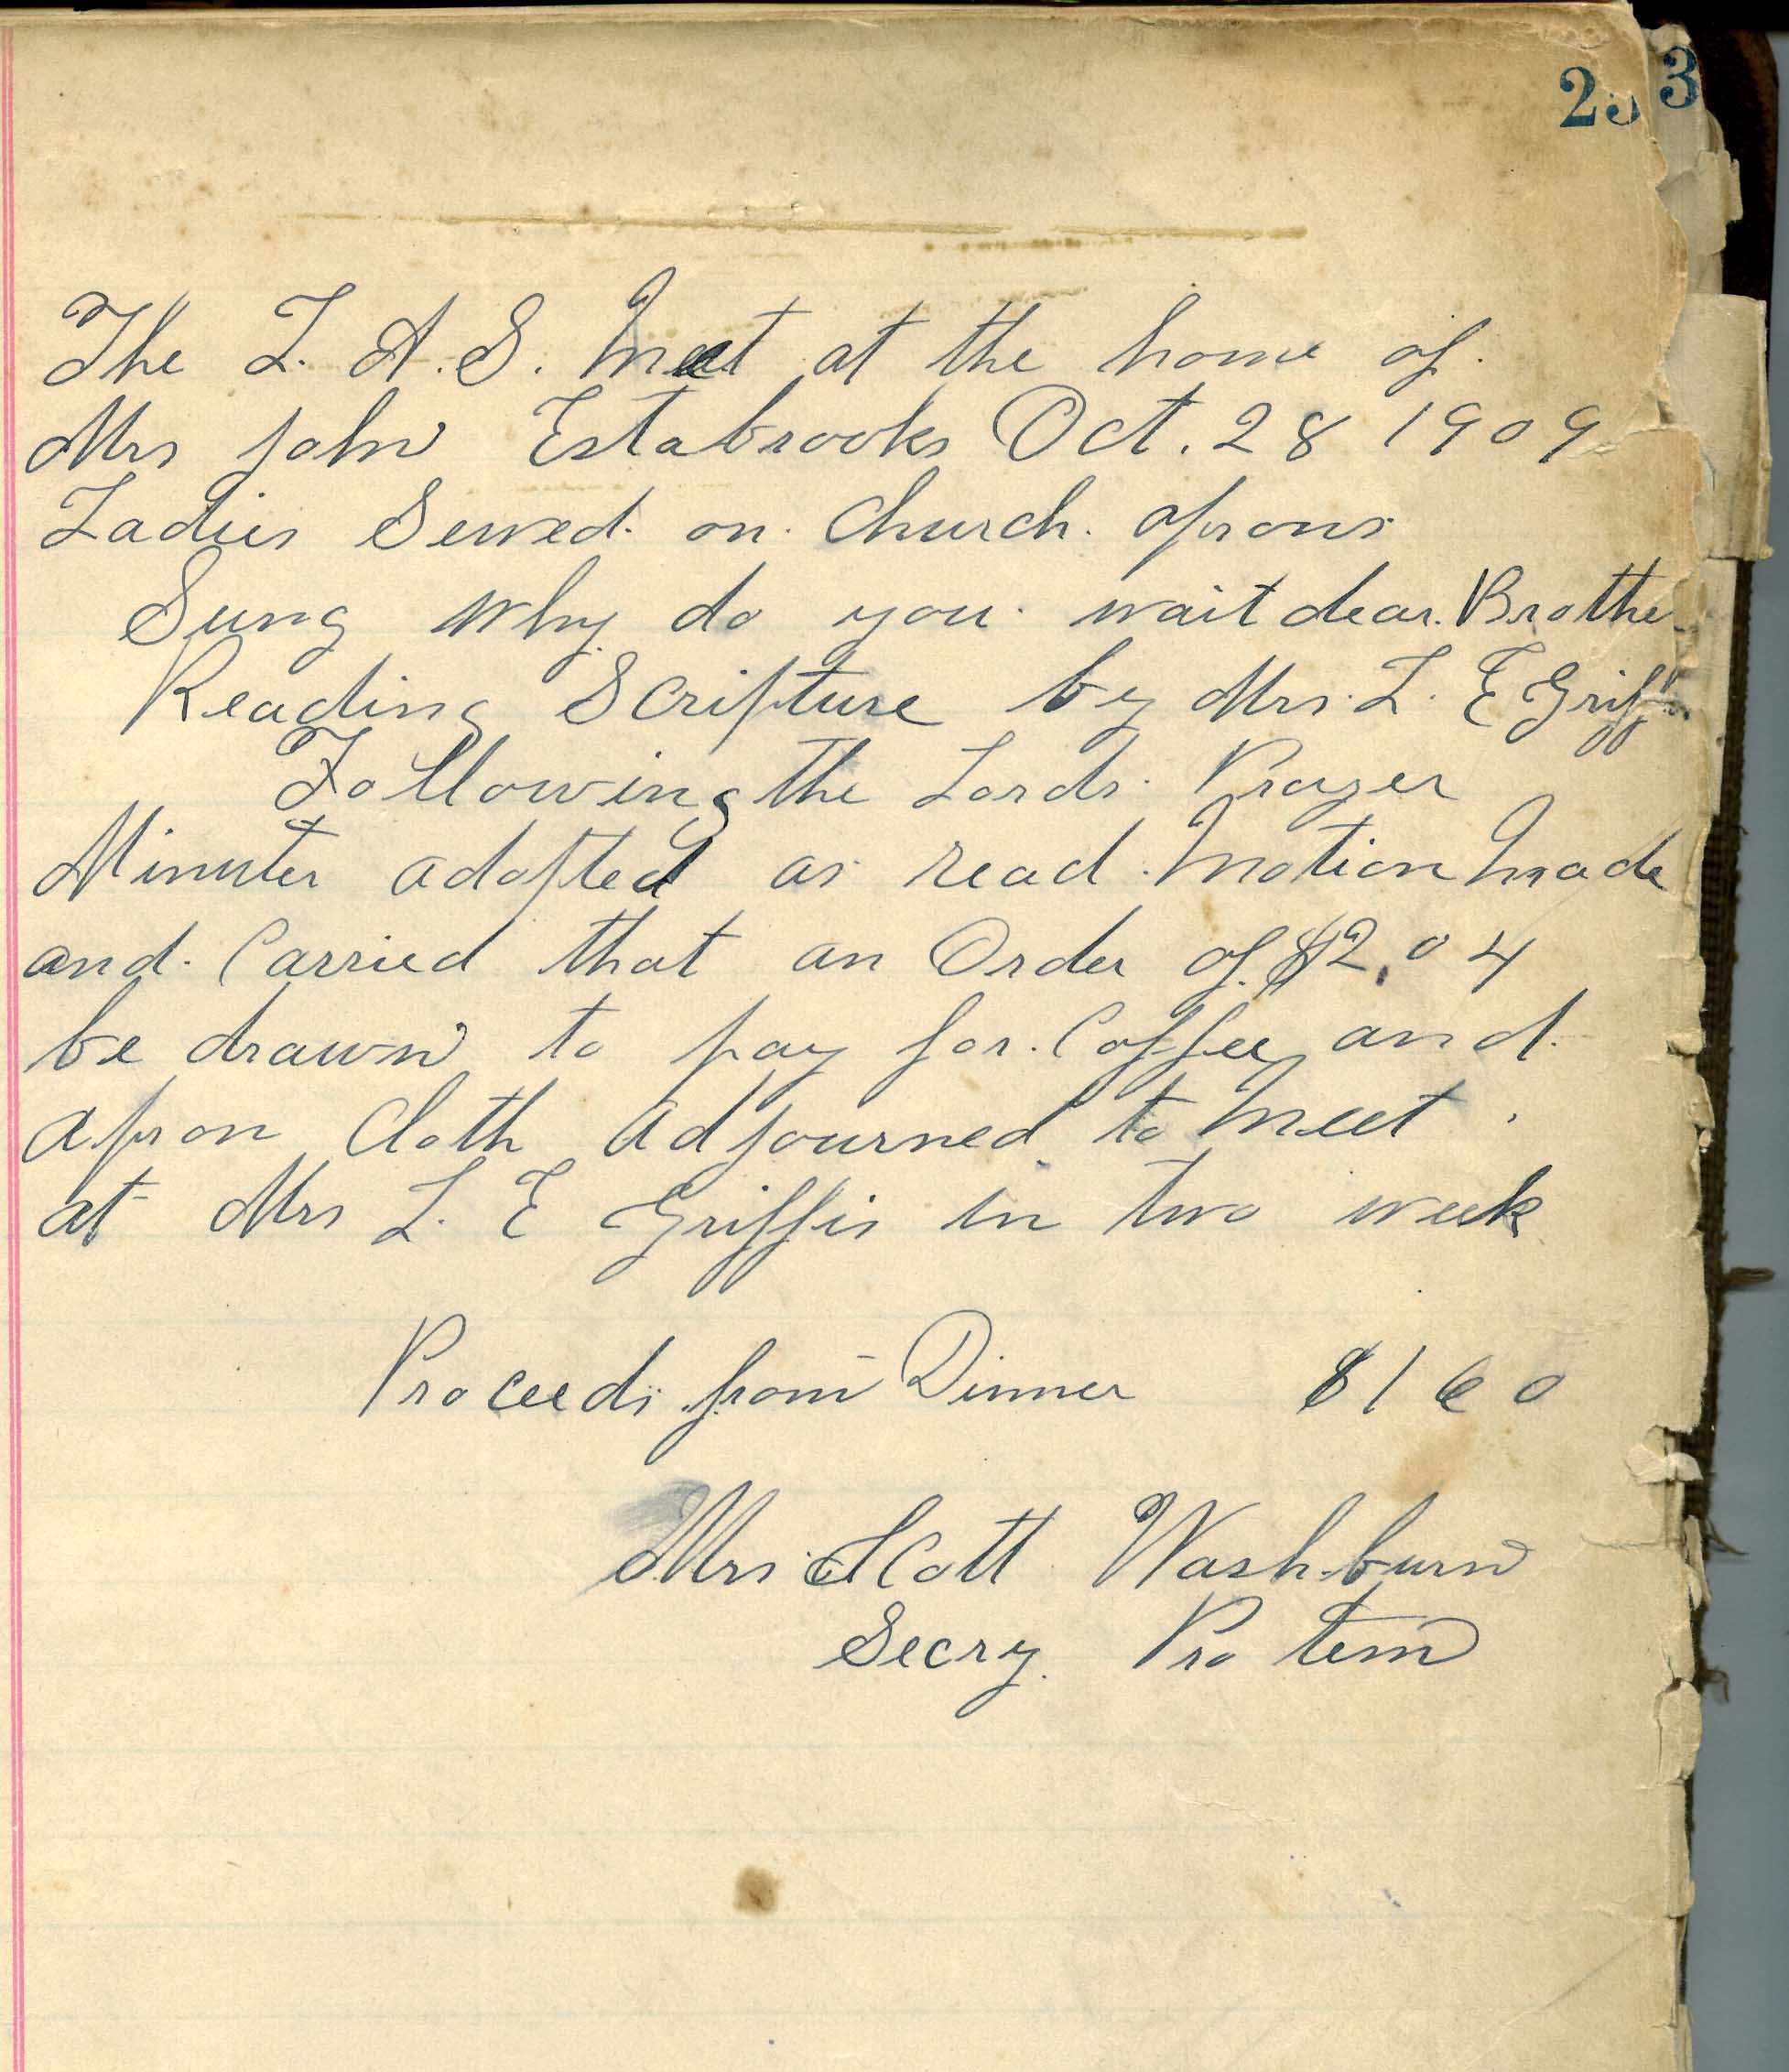 3
The L. A. S. Meet at the home of.
Mrs John Estabrooks Oct. 28 1909
Ladies Sewed. on. Church. aprons
Sung Why do you. wait dear. Brothe
Reading Scripture by Mrs. L. E Griff
Following the Lords. Prayer
Minutes adopted as read. Motion Made
and. Carried that an Order of $2.04
be drawn to pay for. Coffee and.
apron Cloth Adjourned to Meet.
at Mrs L. E Griffis in two week
Proceeds from Dinner $1 60
Mrs. Scott Washburn
Secry. Pro tem